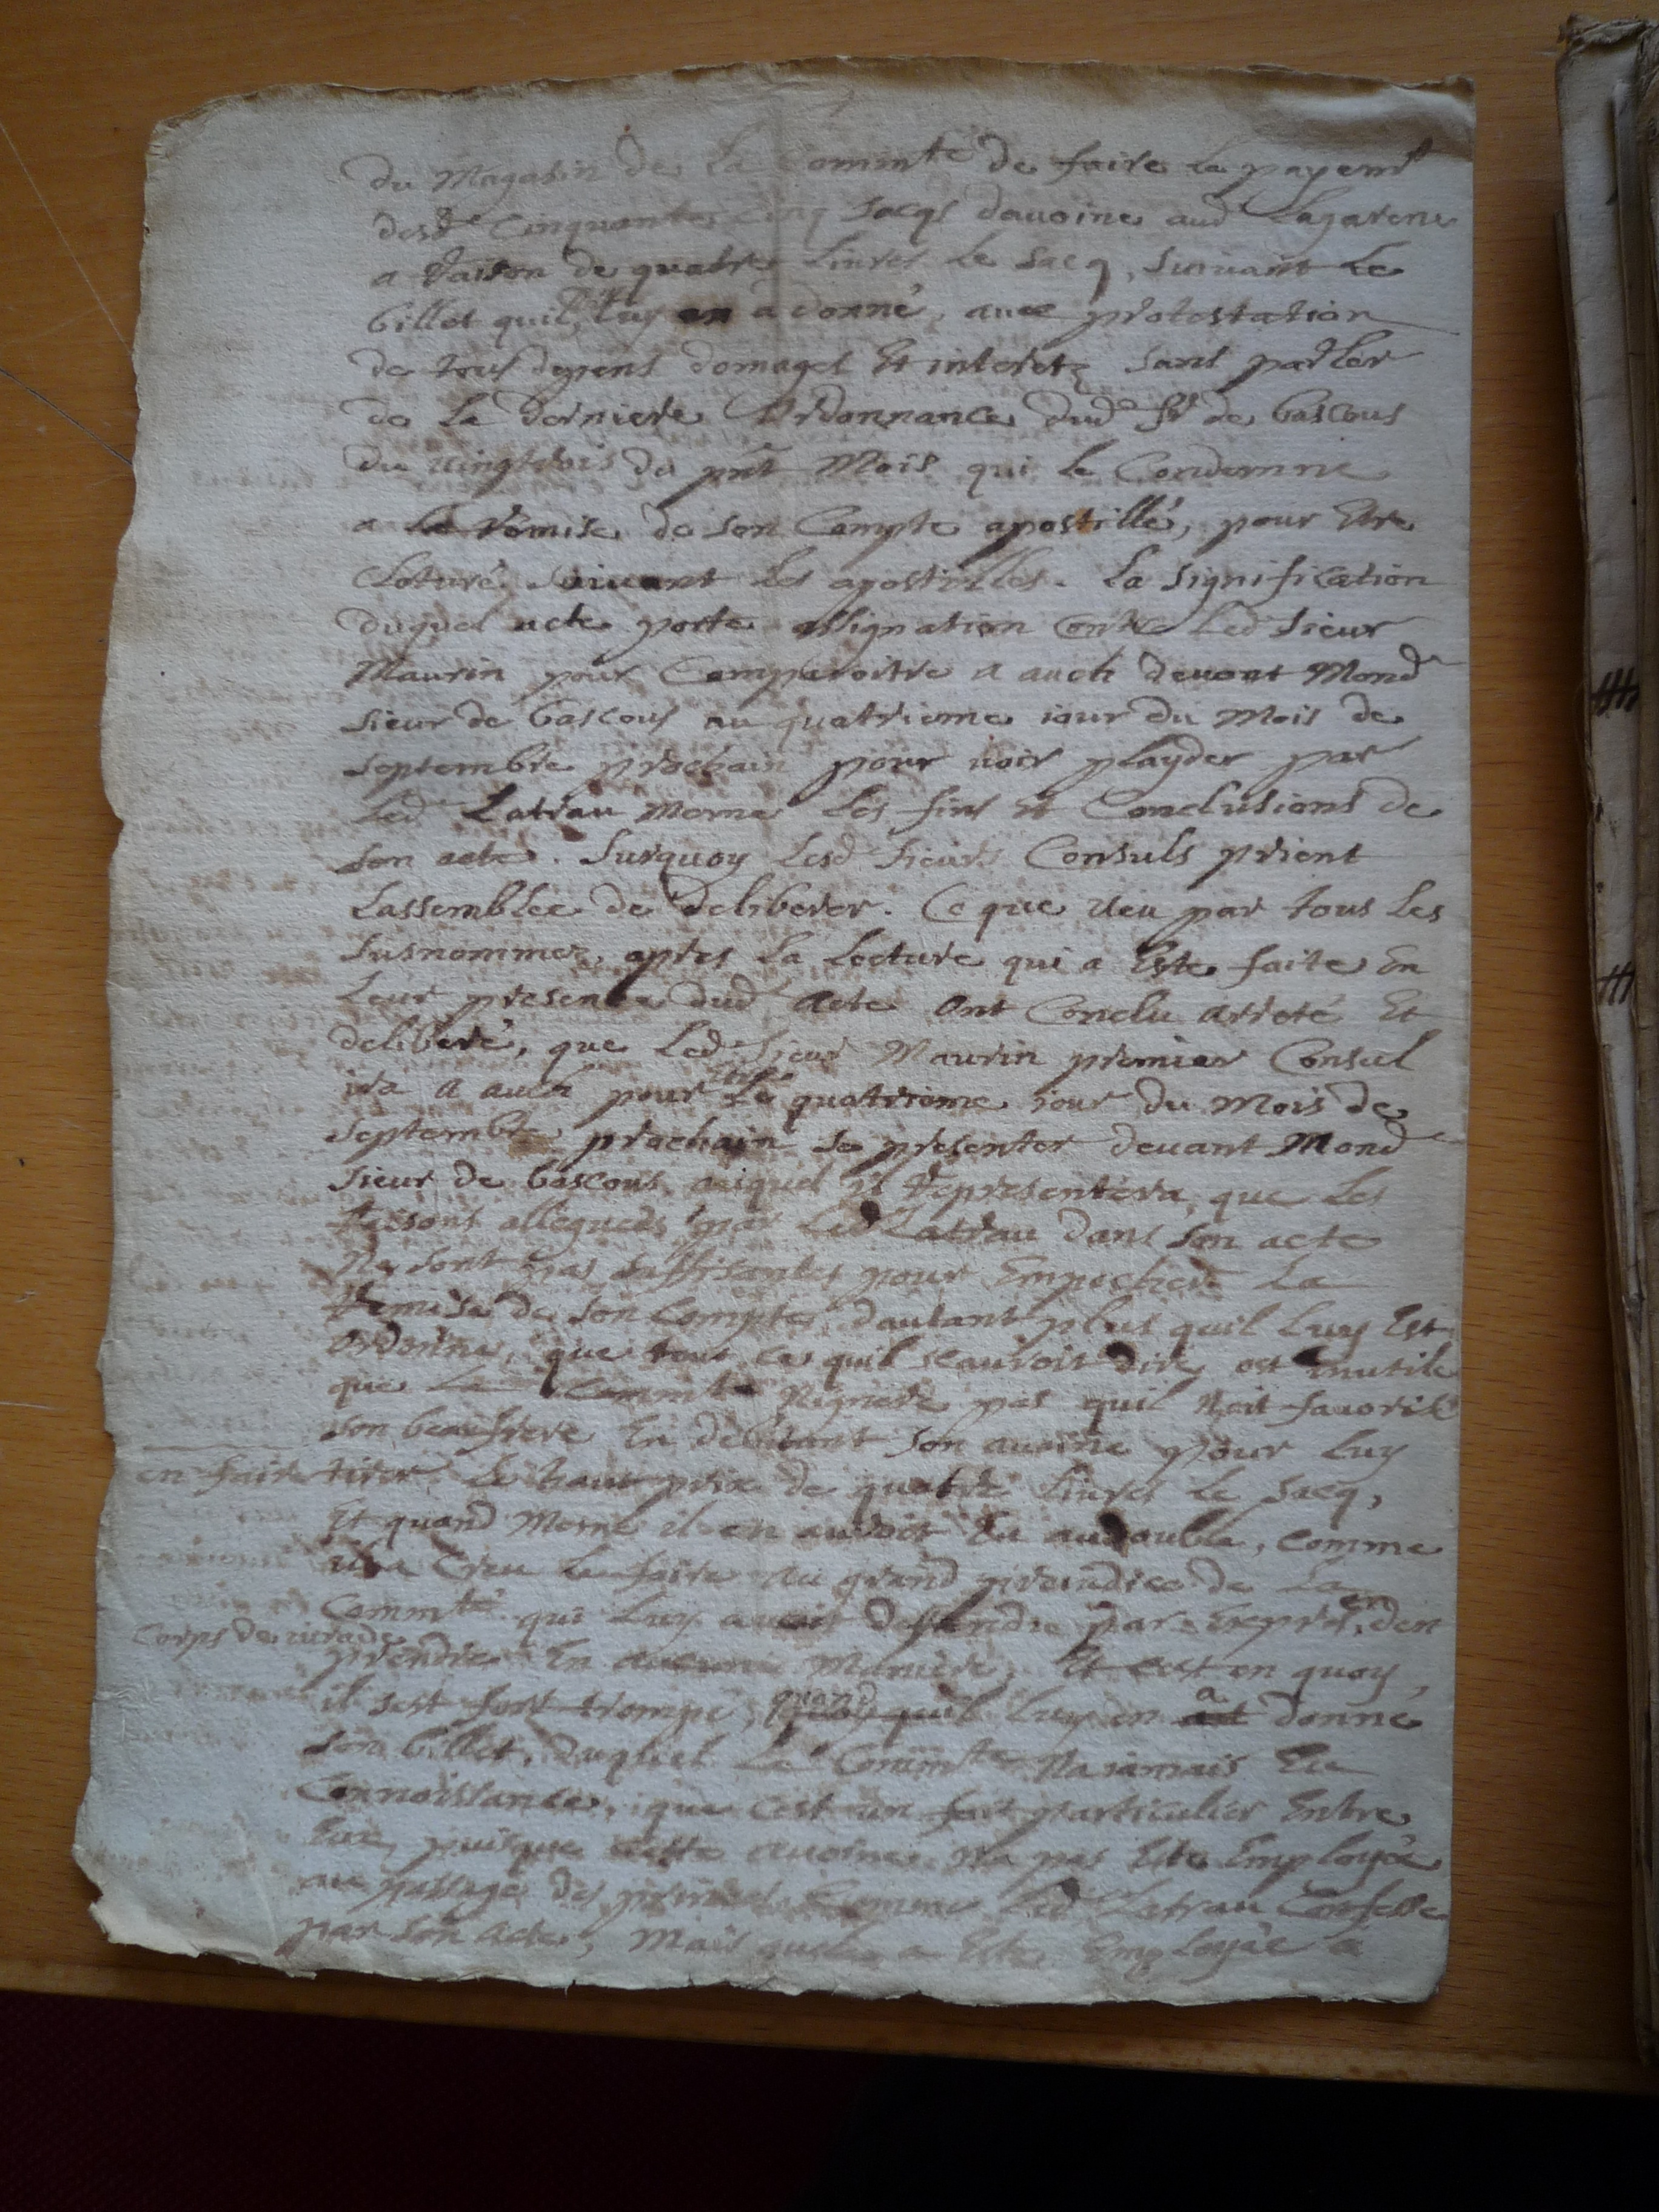 du Magasin de la Commte de faire le payemt
desd Cinquante cinq sacqs davoine aud Lagarene
a raison de quatre livres le sacq, suivant le
billet quil luy en a donné, avec protestation
de tous depens domages Et interetz sans parler
de la derniere Ordonnance dud sr de bascous
du vingt trois du pnt Mois qui le Condamne
a la remise de son Compte apostillé, pour Etre
Cloturé suivant les apostilles. La signification
duquel acte porte assignation Contre Led sieur
Maurin pour Comparoitre a auch devant Mond
sieur de bascous au quatrieme iour du Mois de
septembre prochain pour voir playder par
Led Latrau meme les fins et Conclusions de
son acte. Surquoy Lesd sieurs Consuls prient
Lassemblée de deliberer. Ce que veu par tous les
susnommez, apres la Lecture qui a Este faite En
Leur presence dud acte ont Conclu arreté Et
deliberé, que Led sieur Maurin premier Consul
ira a auch pour le quatrieme iour du Mois de
septembre prochain se presenter devant Mond
sieur de bascous auquel il representera, que les
raisons alleguées par Led Latrau dans son acte
Ne sont pas suffisantes pour Empecher La
Remise de son Compte, dautant plus quil luy Est
ordonné, que tout ce quil scauroit dire est inutile
que La Commte Nignore pas quil Nait favorisé
son beaufrere En debitant son avoine pour Luy
en faire tirer le haut prix de quatre livres le sacq,
Et quand Meme il en auroit Eu au double, comme
il a Creu le faire au grand preiudice de La
Commte qui Luy avoit deffendu par Exprés, en
Corps de iurade den
prendre En aucune Maniere, Et cest en quoy
il sest fort trompé, quand quil Luy en a donné
son billet, duquel La Commte Na iamais Eu
Connoissance, que cest un fait particulier Entre
Eux, puisque cette avoine Na pas Este Employée
au passage des princes Comme Led Latrau Confesse
par son acte, Mais quelle a Este Employée a